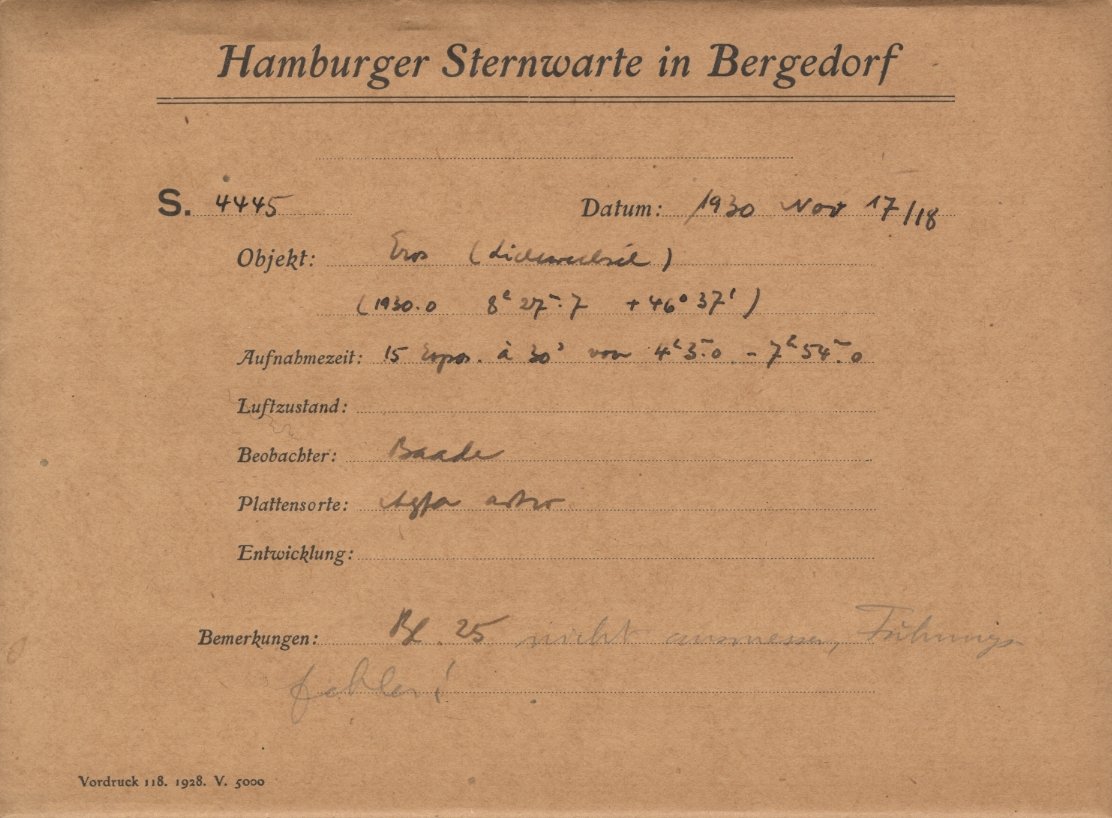 Hamburger Sternwarte in Bergedorf
S. 4445 Datum: 1930 Nov 17/18
Objekt: Eros (Lichtwechsel)
(1930.0 8ʰ 27ᵐ.7 +46° 37')
Aufnahmezeit: 15 Expos. à 30ˢ von 4ʰ 3ᵐ.0 - 7ʰ 54ᵐ.0
Luftzustand:
Beobachter: Baade
Plattensorte: Agfa astro
Entwicklung:
Bemerkungen: Bl. 25 nicht ausmessen, Führungs-
fehler!
Vordruck 118. 1928. V. 5000